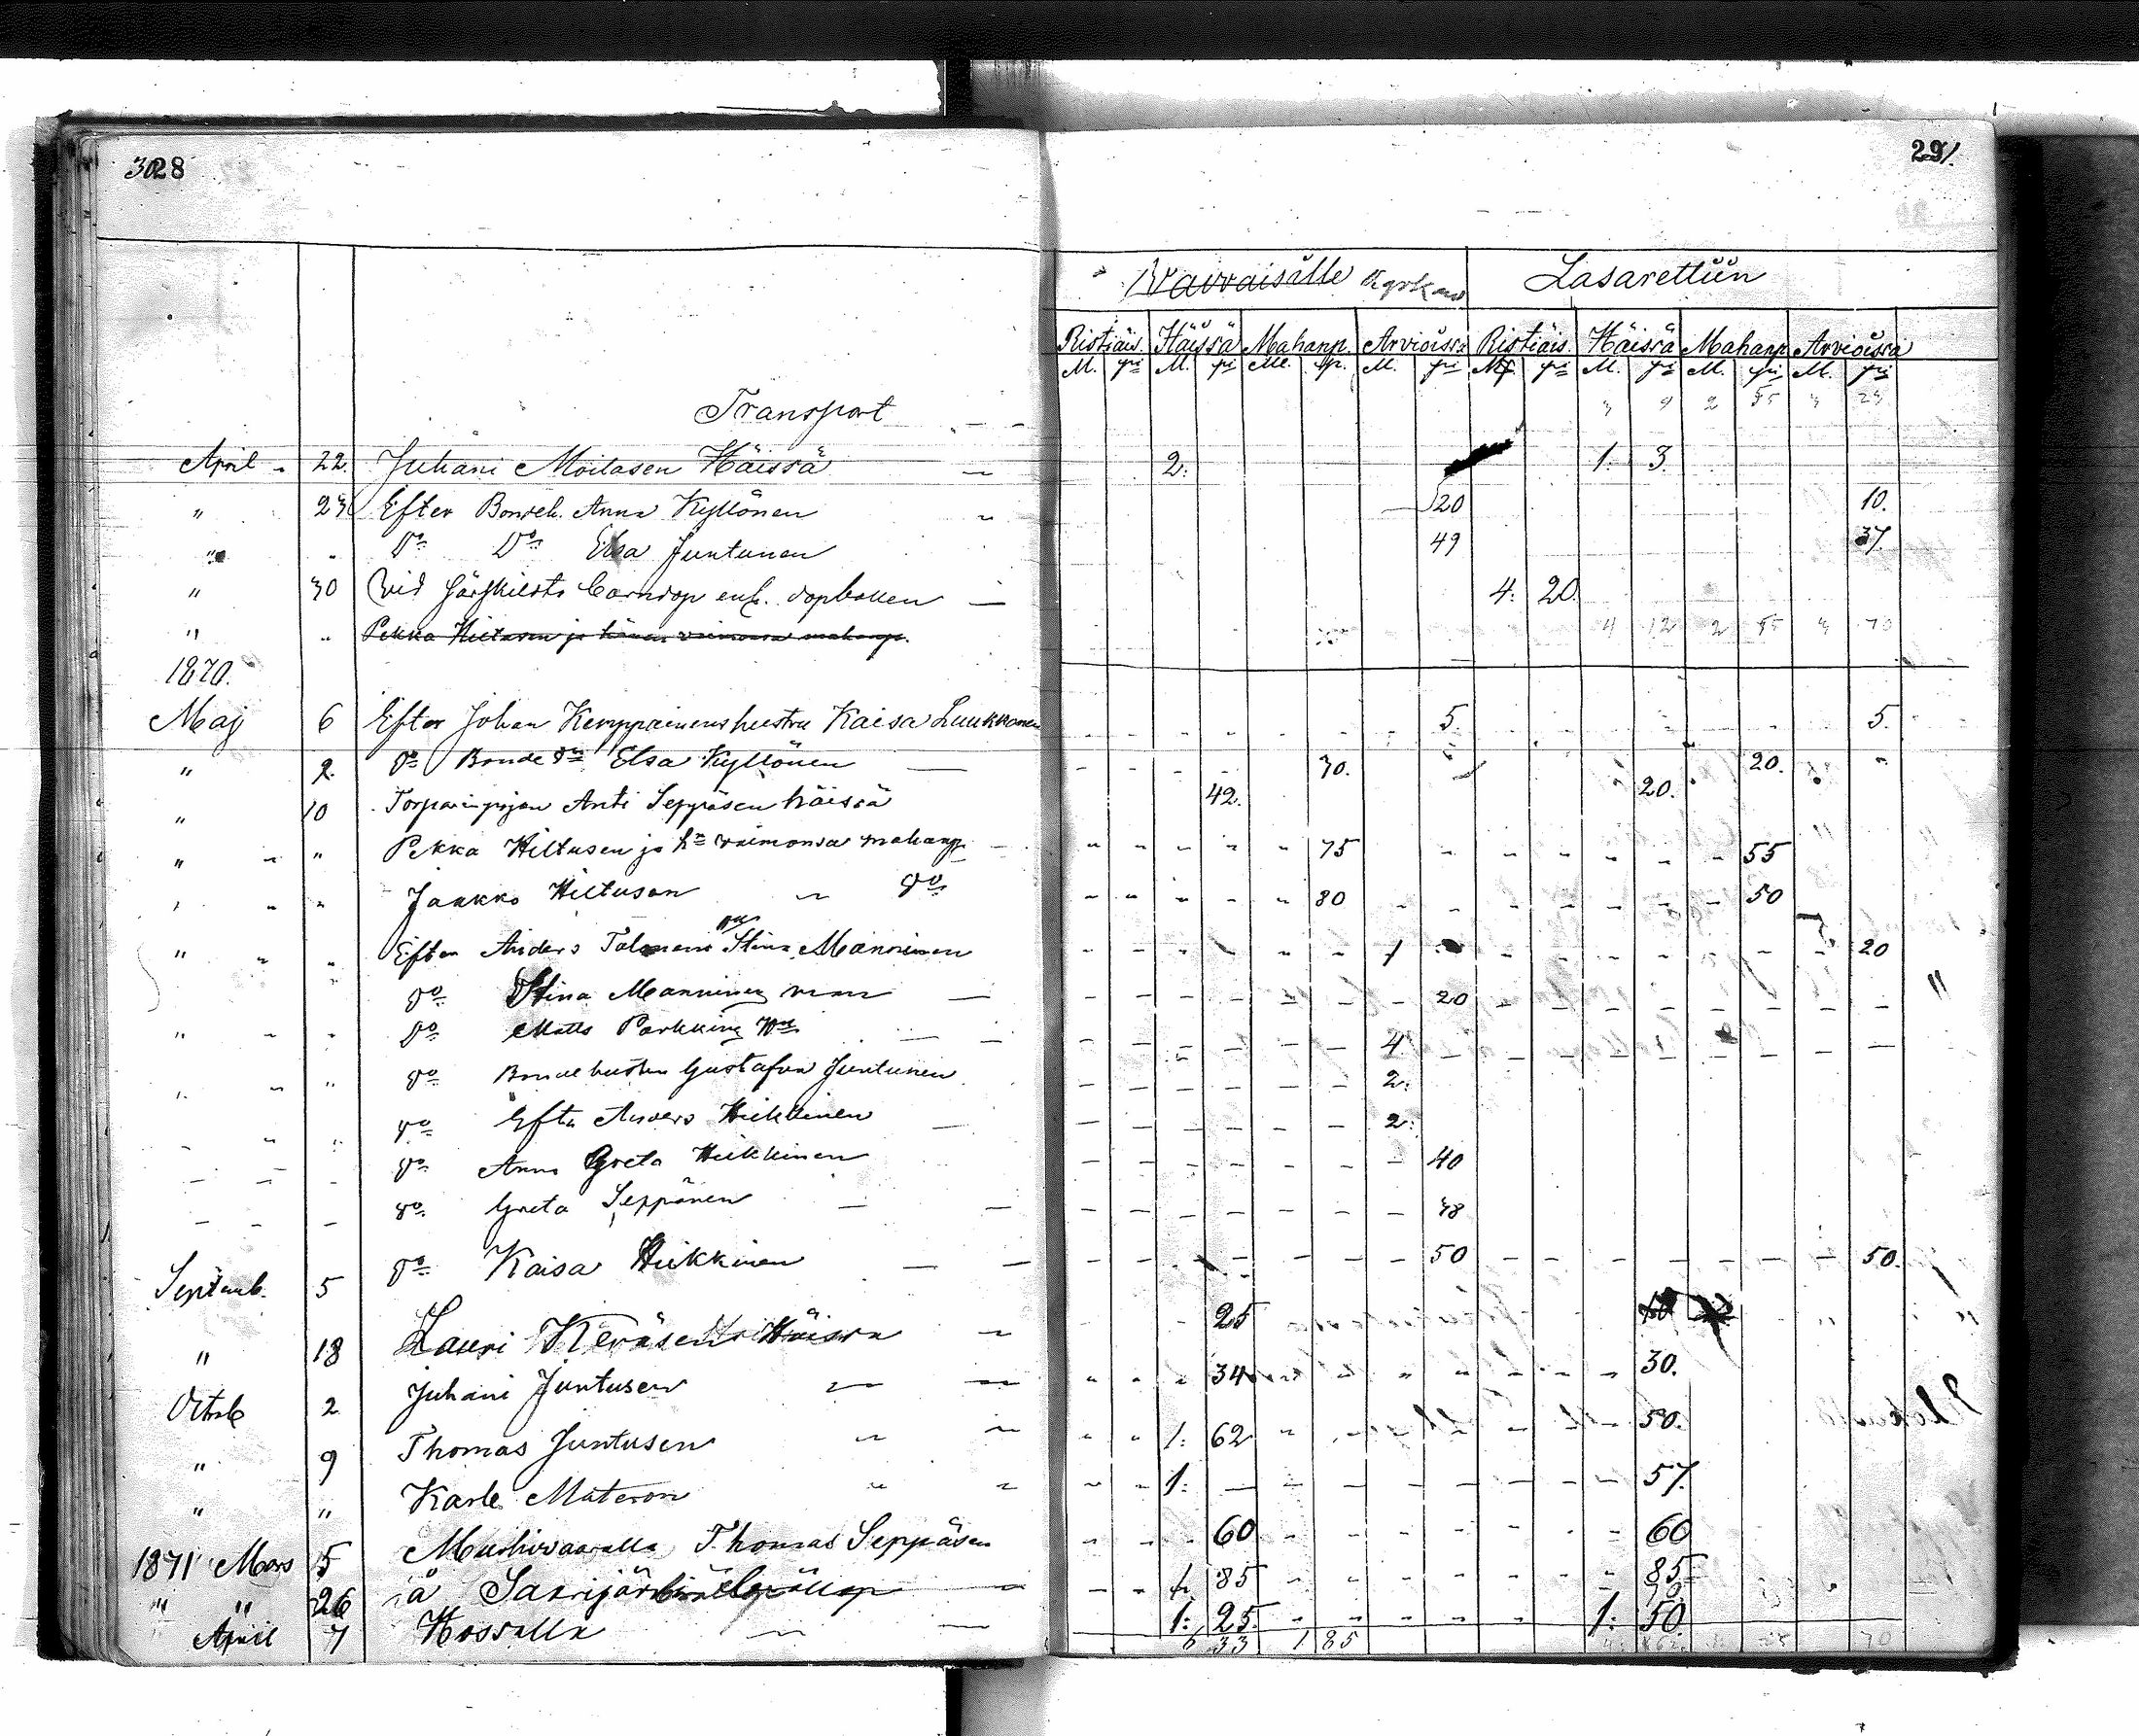 328
29
Waivaisille Kyrkan Lasarettiin
Ristiäis. Häissä Mahanp. Arvioissa Ristiäis. Häissä Mahanp. Arvioissa
M. pi M. pi M. p. M. pi M. pi M. pi M. pi M. pi
Transport 9 2 55
April 22. Juhani Moilasen Häissä 2. 1. 3.
" 23 Efter Bondeh. Anna Kyllönen 20 10.
" " Do Do Elsa Juntunen 49 37.
" 30 Vid särskilda barndop enl. dopboken 4: 20.
" " Pekka Hiltusen ja hänen vaimonsa mahanp. 4 12 2 55 70
1870.
Maj 6 Efter Johan Kemppainens hustru Kaisa Luukkonen 5. 5.
" 2. Do Bonde Elsa Kyllönen 70. 20.
" 10 Torparinpojan Anti Seppäsen häissä 42. 20.
" " " Pekka Hiltusen ja hn vaimonsa mahanp. 75 55
" " Jaakko Hiltusen " Do 80 50
" " " Efter Anders Tolonens Stina Manninen 1 20
Do Stina Manninen 20
" " " Do Matts Parkkinen 4.
" " " Do Bondehustru Gustafva Juntunen 2.
" " Do Efter Anders Heikkinen 2.
Do Anna Greta Heikkinen 40
Do Greta Seppänen 48
Septemb. 5 Do Kaisa Heikkinen 50 50.
" 18 Lauri Keräsen Häissä 25
Octob 2 Juhani Juntusen " 34 30.
" 9 Thomas Juntusen " 1: 62 50.
" " Karle Materon " 1: 57.
1871 Mars 5 Thomas Seppäsen 60 60
" " 26 å Sakrijärvi 85 85
April 7 Hossalla 1: 25. 1: 50
6 33 1 85 70